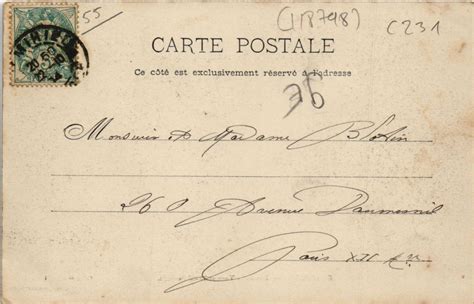 55
(18798)
C231
CARTE POSTALE
Ce côté est exclusivement réservé à l'adresse
36
Monsieur & Madame Blotin
260 Avenue Daumesnil
Paris XII